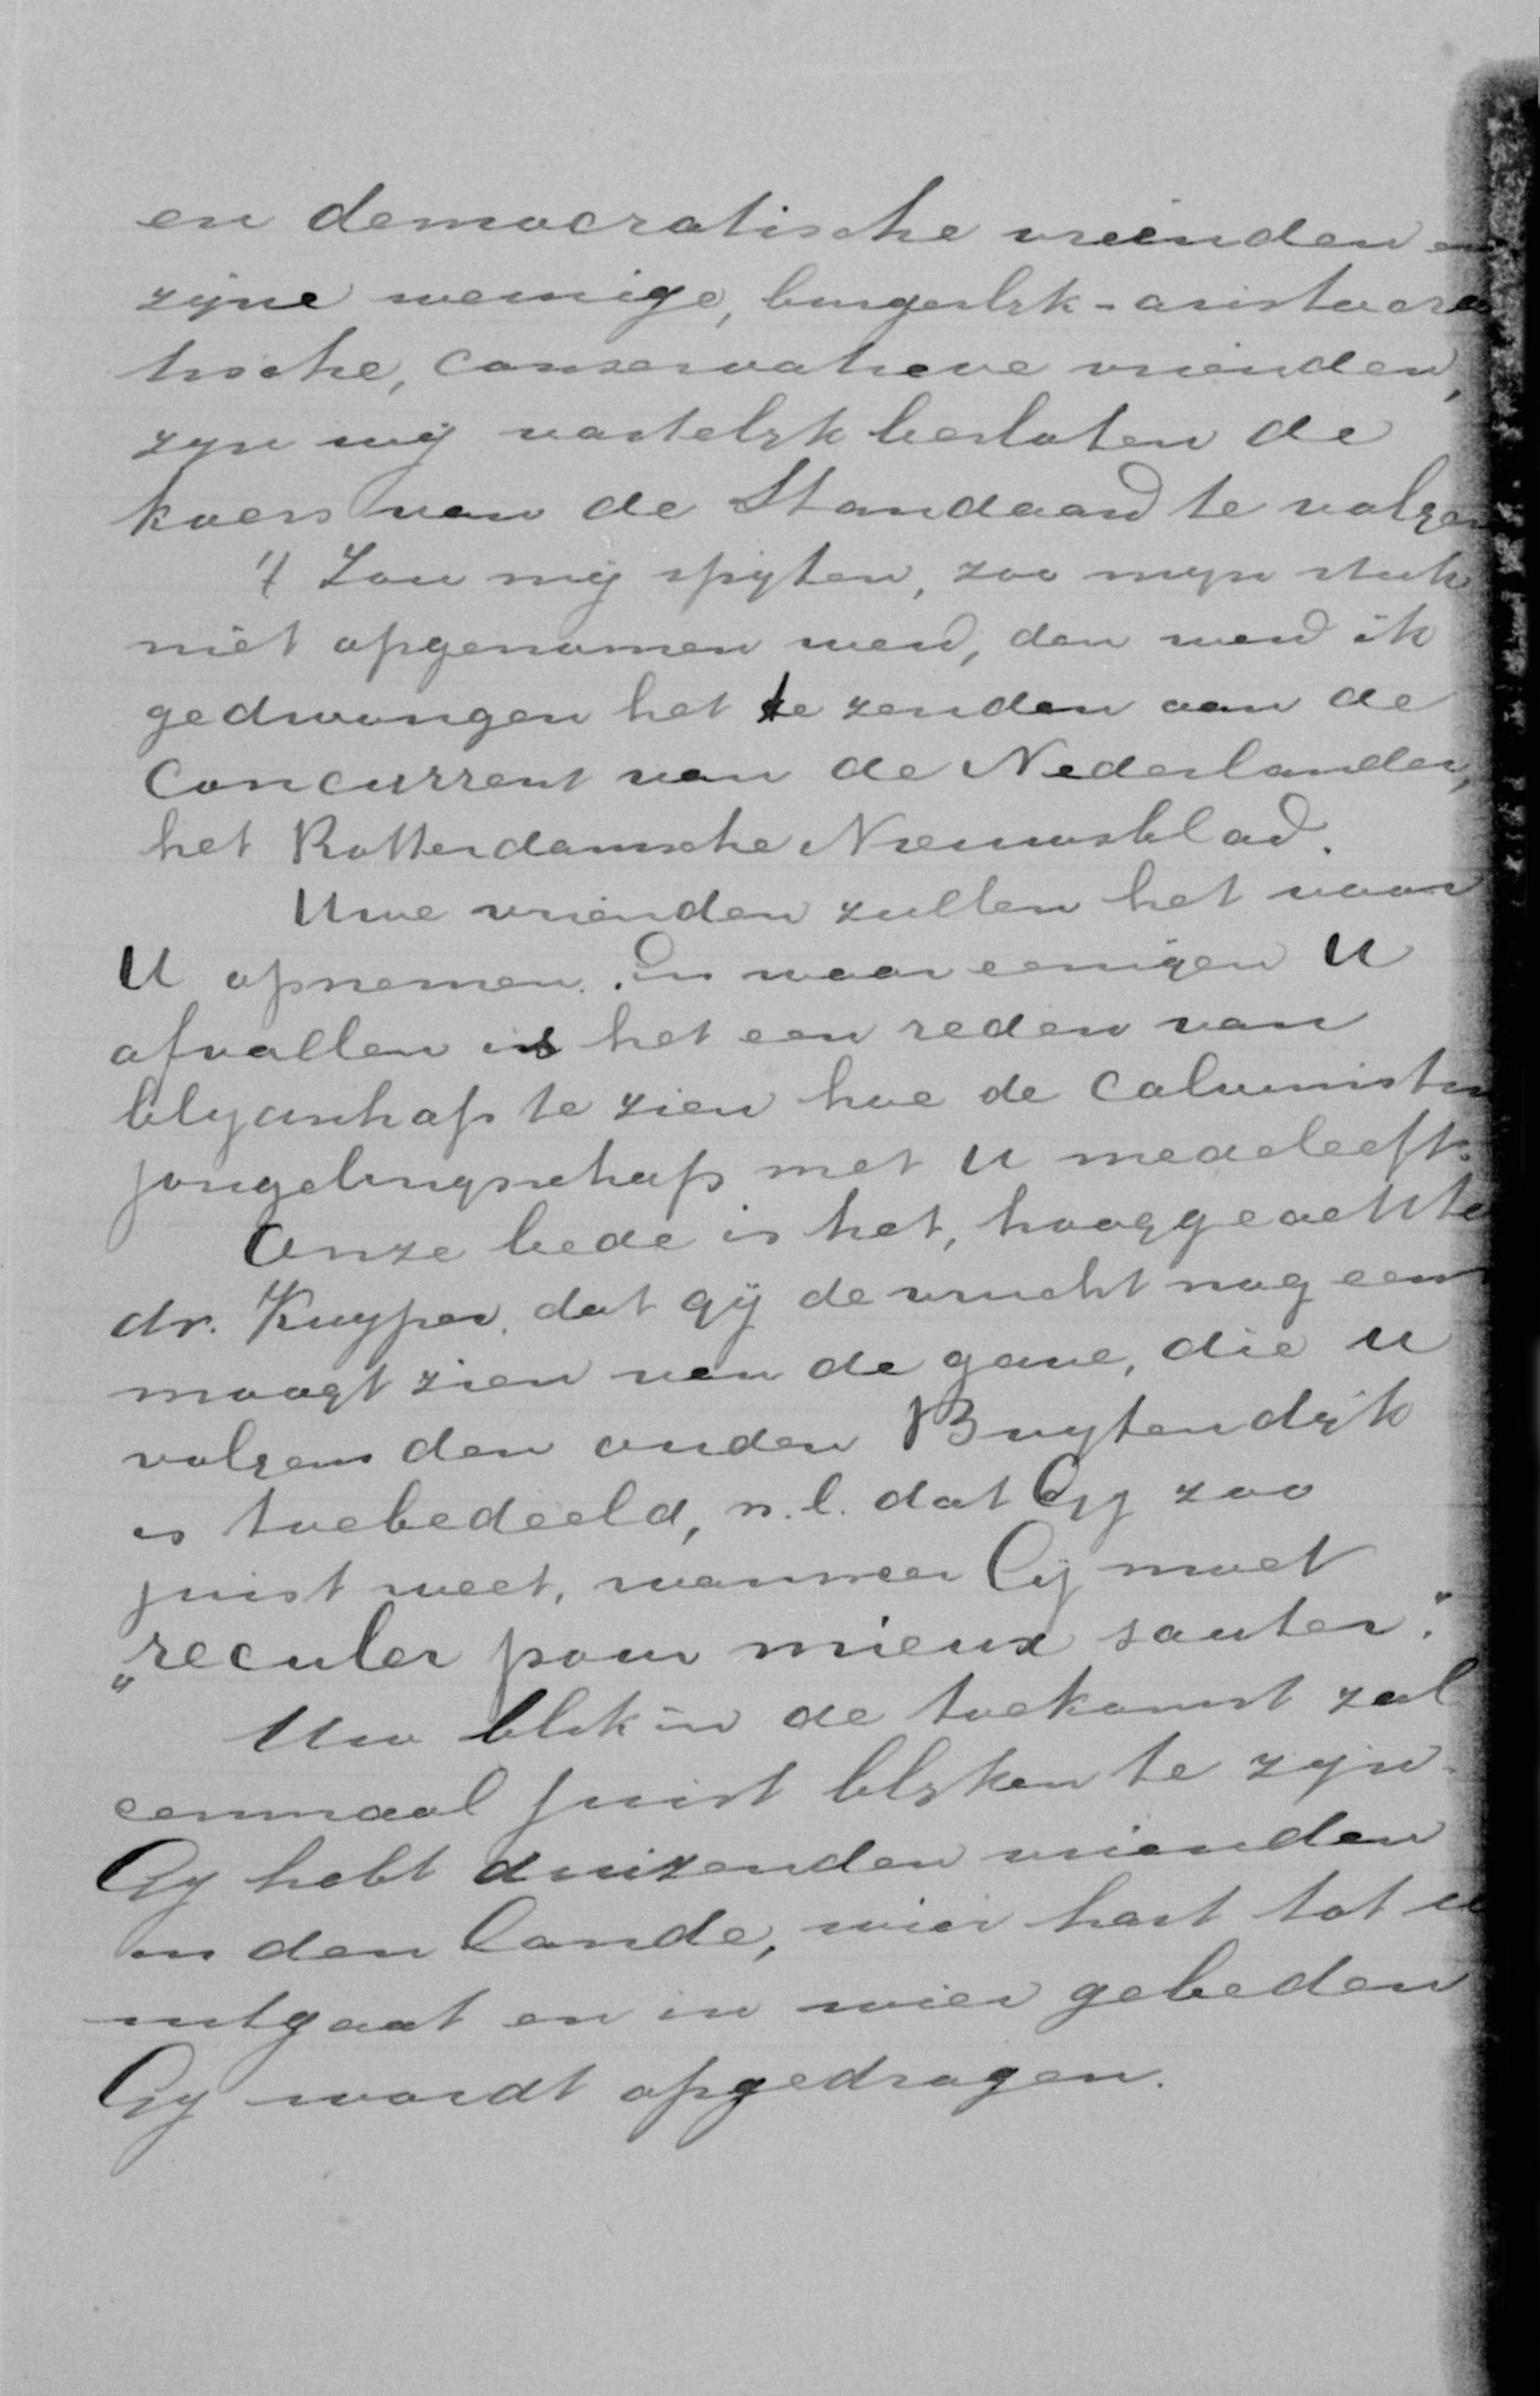 en democratische vrienden en
zijne weinige, burgerlijk-aristocra
tische, conservatieve vrienden,
zijn wij vastelijk besloten de
koers van de Standaard te volgen
't Zou mij spijten, zoo mijn stuk
niet opgenomen werd, dan werd ik
gedwongen het te zenden aan de
Concurrent van de Nederlander,
het Rotterdamsche Nieuwsblad.
Uwe vrienden zullen het voor
U opnemen. En waar eenigen U
afvallen is het een reden van
blijdschap te zien hoe de calvinisten
jongelingschap met U medeleeft.
Onze bede is het, hooggeachte
dr. Kuyper, dat gij de vrucht nog eens
moogt zien van de gave, die U
volgens den ouden Buytendijk
is toebedeeld, n.l. dat Gij zoo
juist weet, wanneer Gij moet
„reculer pour mieux sauter."
Uw blik in de toekomst zal
eenmaal juist blijken te zijn.
Gij hebt duizenden vrienden
in den lande, wier hart tot U
uitgaat en in wier gebeden
Gij wordt opgedragen.